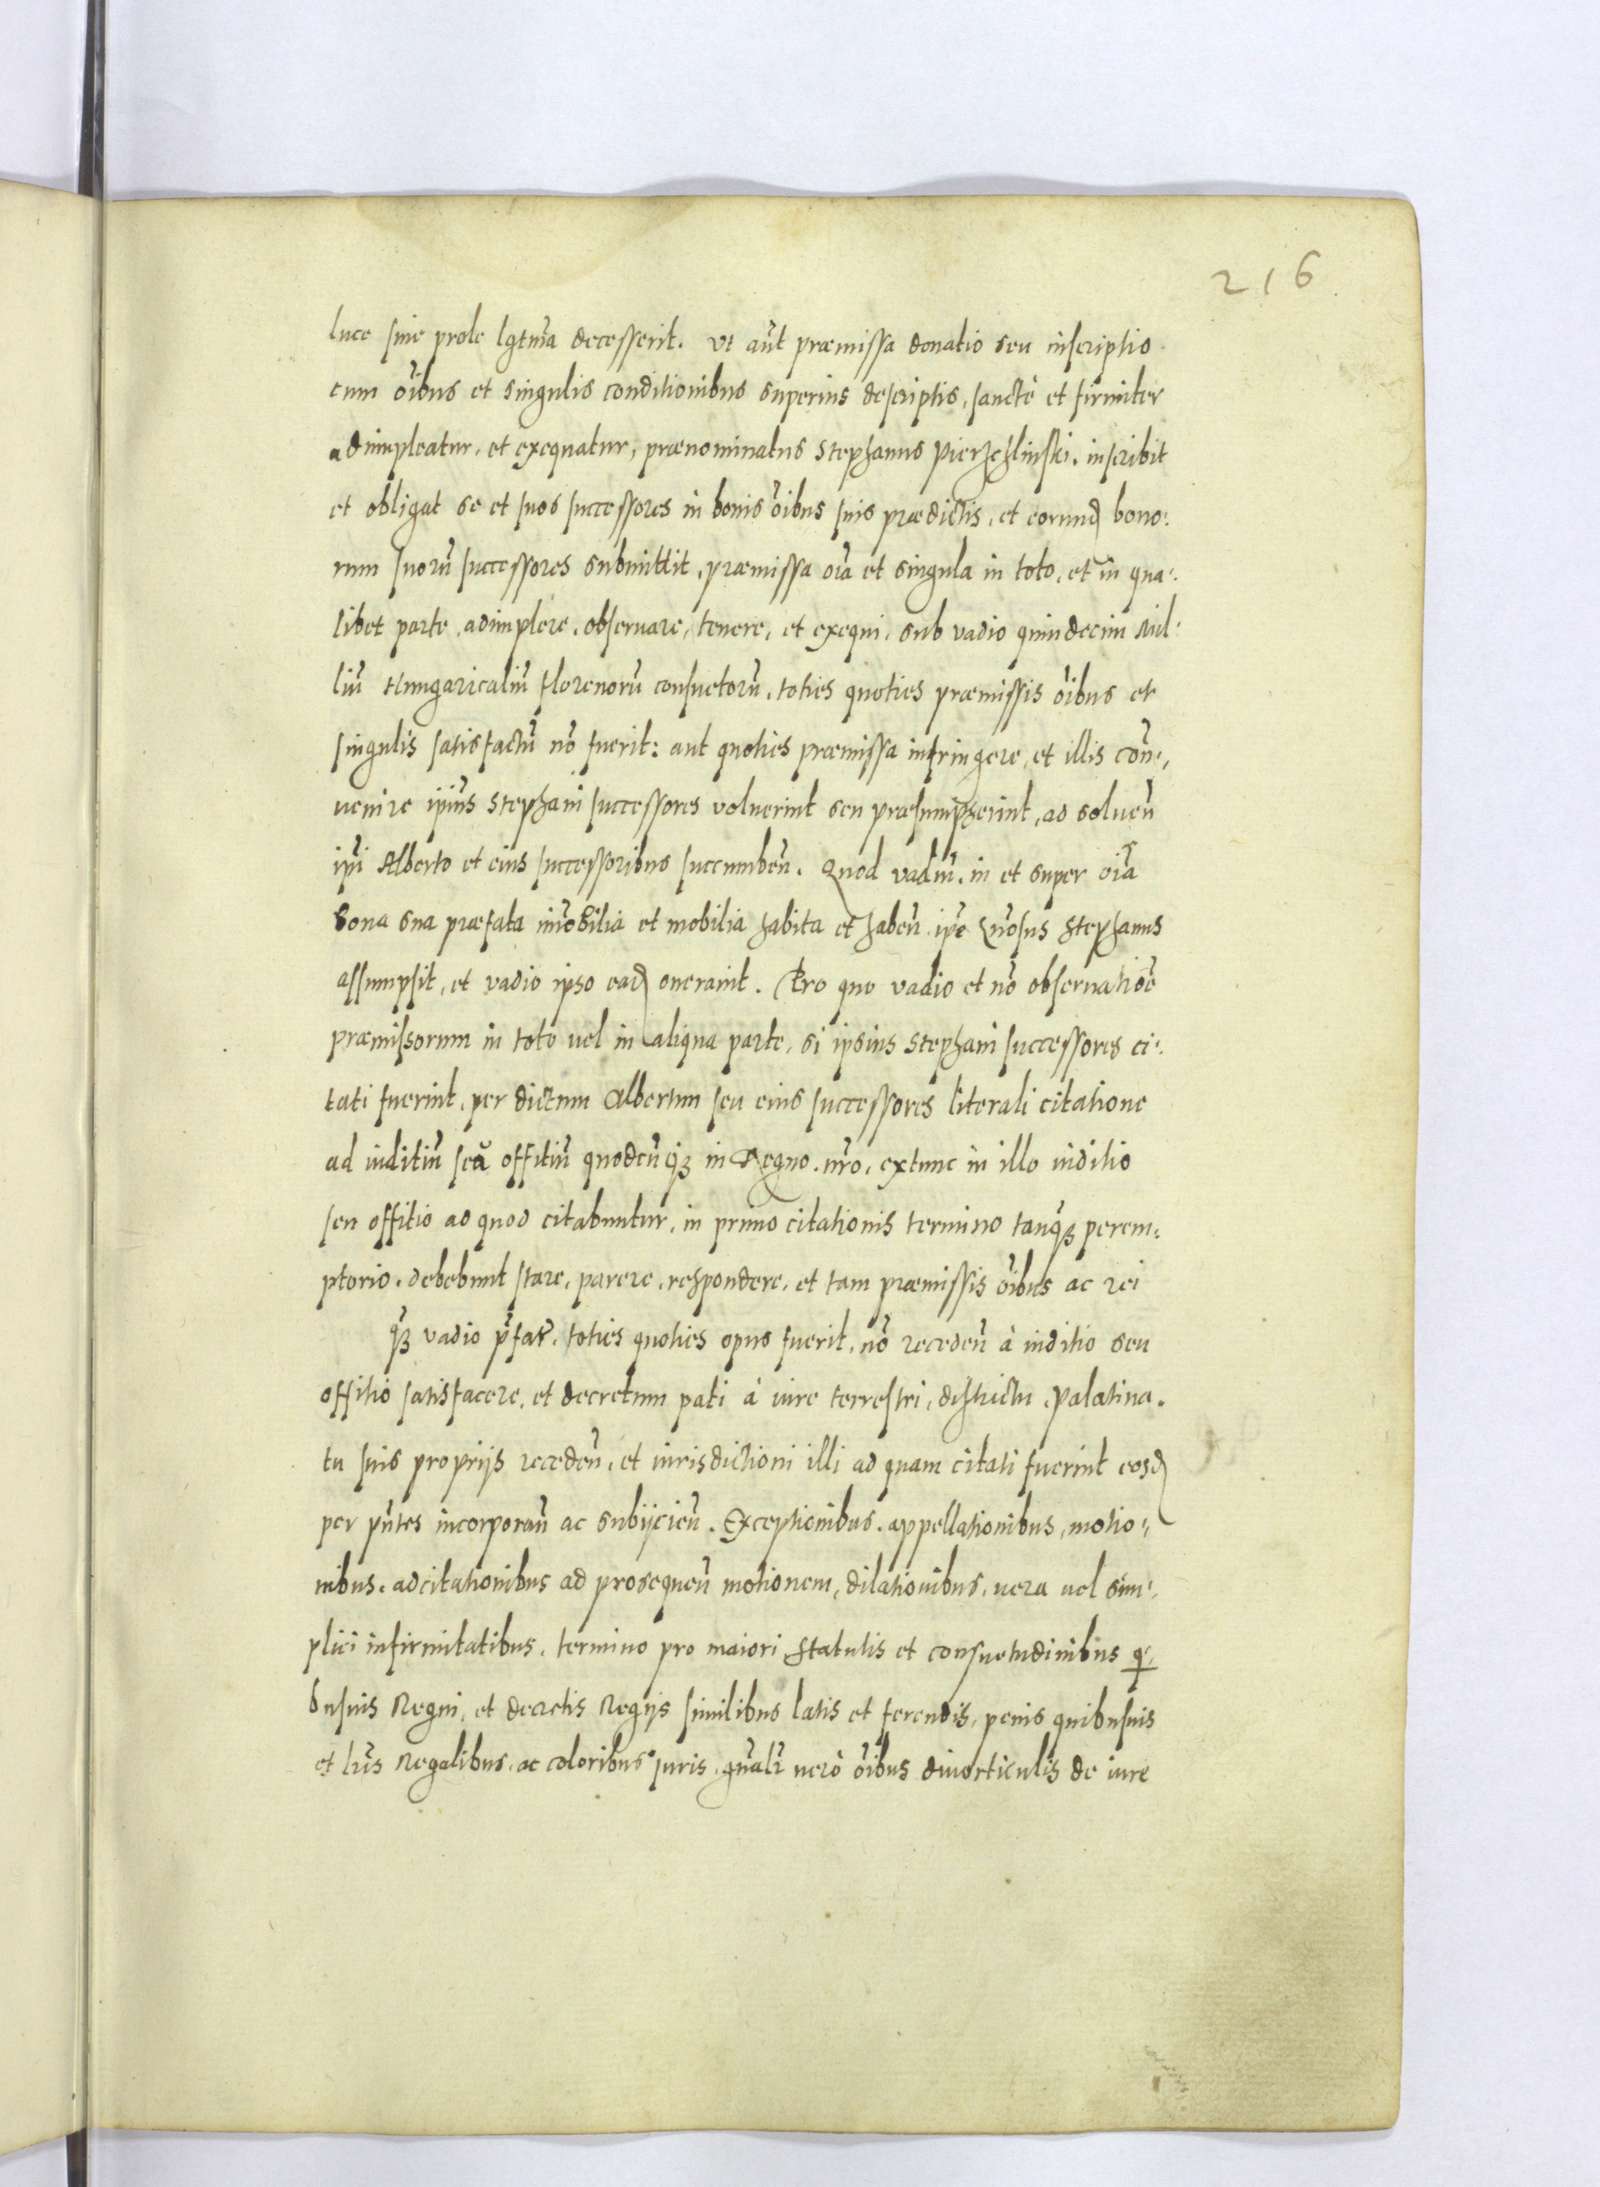 216
luce sine prole lgtma decesserit. Ut aut præmissa donatio seu inscriptio
cum oibus et singulis conditionibus superius descriptis, sanctè et firmiter
adimpleatur, et exequatur, prænominatus Stephanus Pierzchlinski, inscribit
et obligat se et suos successores in bonis oibus suis prædictis, et eorund bono:
rum suorũ successores submittit, præmissa oia et singula in toto, et in qua:
libet parte, adimplere, obseruare, tenere, et exequi, sub vadio quindecim Mil:
liũ Hungaricaliũ florenorũ consuetorũ, toties quoties præmissis oibus et
singulis satisfactũ nõ fuerit: aut quoties præmissa infringere, et illis con:,
uenire ipius Stephani successores voluerint seu præsumpserint, ad soluen̄
ipi Alberto et eius successoribus succumben̄. Quod vadiũ, in et super oia
bona sua præfata imobilia et mobilia habita et haben̄ ipe Gnosus Stephanus
assumpsit, et vadio ipso ead onerauit. Pro quo vadio et nõ obseruatiõe
præmissorum in toto uel in aliqua parte, si ipsius Stephani successores ci:
tati fuerint, per dictum Albertum seu eius successores literali citatione
ad iuditiũ seu offitiũ quodcũqȝ in Regno nro, extunc in illo iuditio
seu offitio ad quod citabuntur, in primo citationis termino tanqȝ perem:
ptorio, debebunt stare, parere, respondere, et tam præmissis oibus ac rei
qȝ vadio pfat, toties quoties opus fuerit, nõ receden̄ à iuditio seu
offitio satisfacere, et decretum pati à iure terrestri, districtu, Palatina.
tu suis proprijs receden̄, et iurisdictioni illi ad quam citati fuerint eosd
per pñtes incorporan̄ ac subijcien̄. Exceptionibus, appellationibus, motio:,
nibus, adcitationibus ad prosequen̄ motionem, dilationibus, uera uel sim:,
plici infirmitatibus, termino pro maiori, Statutis et consuetudinibus q:
busuis Regni, et decretis Regijs similibus latis et ferendis, penis quibusuis
et lris Regalibus, ac coloribus iuris, gñalr uerò oibus diuorticulis de iure